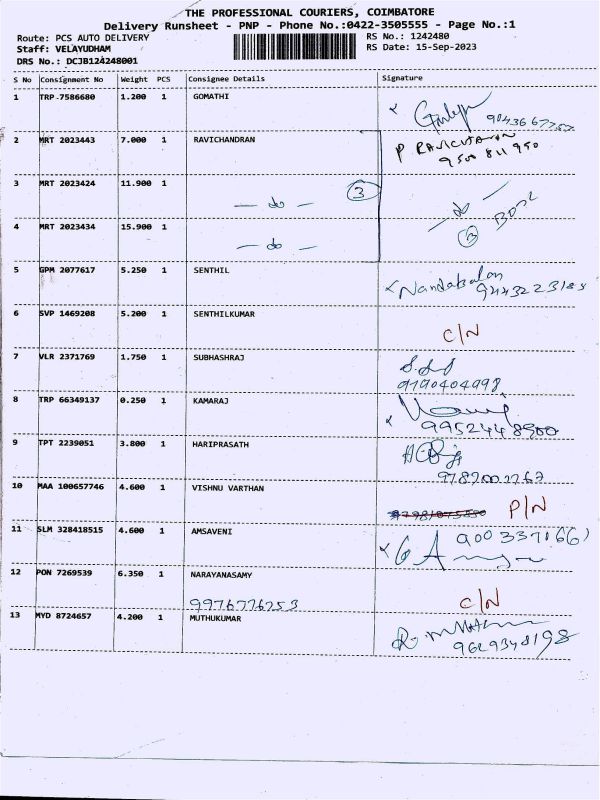 THE PROFESSIONAL COURIERS, COIMBATORE
Delivery Runsheet - PNP - Phone No.:0422-3505555 - Page No.:1
Route: PCS AUTO DELIVERY RS No.: 1242480
Staff: VELAYUDHAM RS Date: 15-Sep-2023
DRS No.: DCJB124248001
S No Consignment No Weight PCS Consignee Details Signature
1 TRP 7586680 1.200 1 GOMATHI
2 MRT 2023443 7.000 1 RAVICHANDRAN P RAVICHANDRAN
9500 811 950
3 MRT 2023424 11.900 1 — do — 3 — do — 3 BOX
4 MRT 2023434 15.900 1 — do —
5 GPM 2077617 5.250 1 SENTHIL Nandabalan
6 SVP 1469208 5.200 1 SENTHILKUMAR C/N
7 VLR 2371769 1.750 1 SUBHASHRAJ
9190404998
8 TRP 66349137 0.250 1 KAMARAJ
9952448900
9 TPT 2239051 3.800 1 HARIPRASATH
10 MAA 100657746 4.600 1 VISHNU VARTHAN P/N
11 SLM 328418515 4.600 1 AMSAVENI
12 PON 7269539 6.350 1 NARAYANASAMY
9976776253 C/N
13 MYD 8724657 4.200 1 MUTHUKUMAR
9629348198